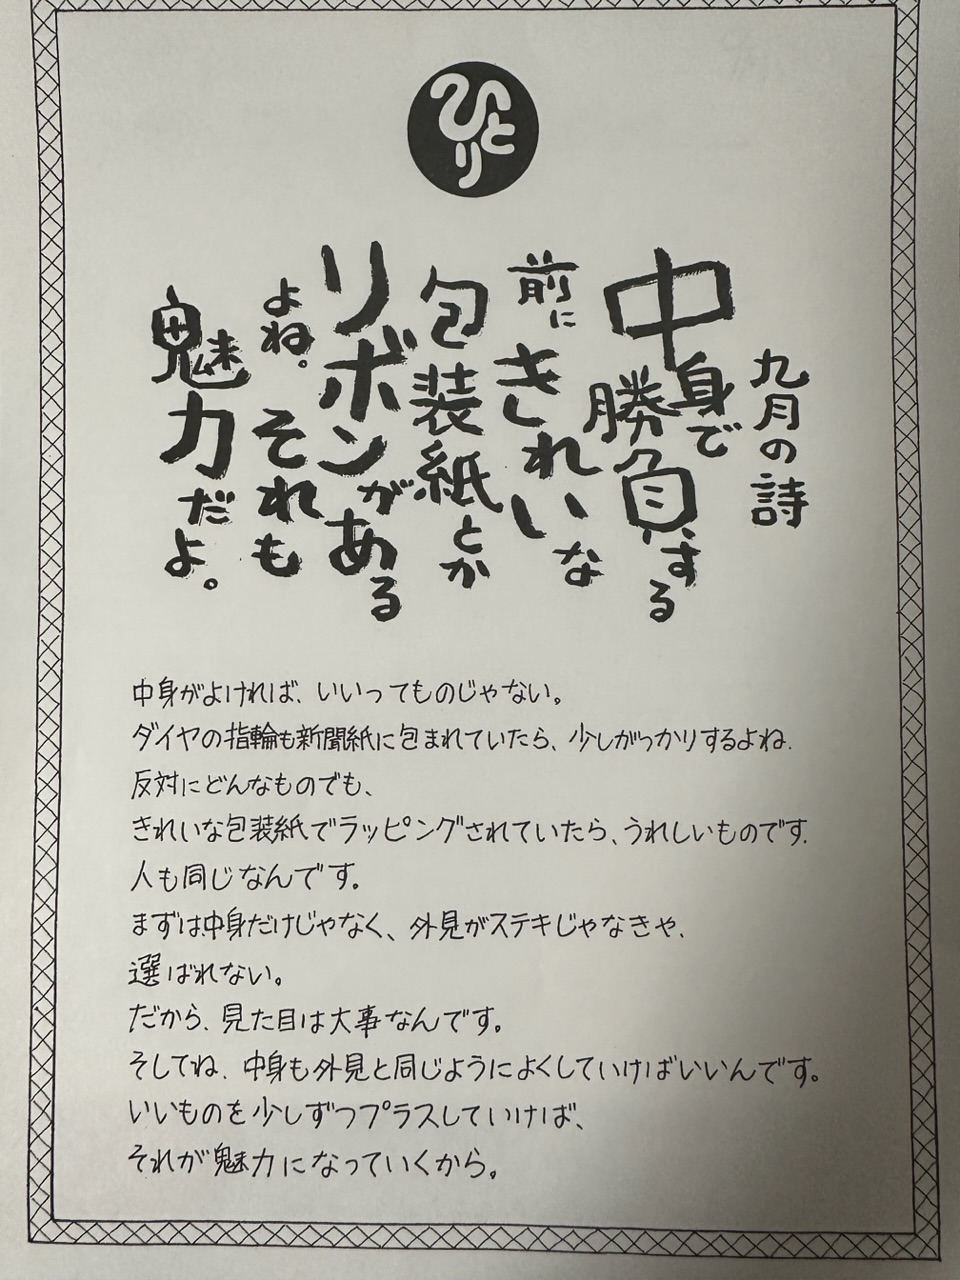 ひとり
九月の詩
中身で勝負する
前にきれいな
包装紙とか
リボンがある
よね。それも
魅力だよ。
中身がよければ、いいってものじゃない。
ダイヤの指輪も新聞紙に包まれていたら、少しがっかりするよね.
反対にどんなものでも、
きれいな包装紙でラッピングされていたら、うれしいものです.
人も同じなんです。
まずは中身だけじゃなく、外見がステキじゃなきゃ、
選ばれない。
だから、見た目は大事なんです。
そしてね、中身も外見と同じようによくしていけばいいんです。
いいものを少しずつプラスしていけば、
それが魅力になっていくから。